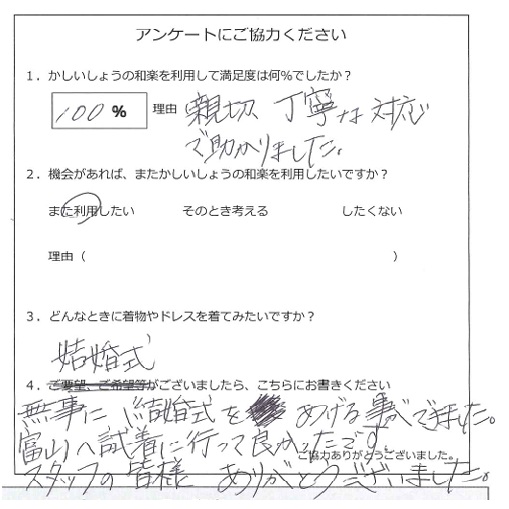 アンケートにご協力ください
1．かしいしょうの和楽を利用して満足度は何%でしたか？
100 % 理由 親切、丁寧な対応
で助かりました。
2．機会があれば、またかしいしょうの和楽を利用したいですか？
また利用したい そのとき考える したくない
理由（ ）
3．どんなときに着物やドレスを着てみたいですか？
結婚式
4．ご要望、ご希望等がございましたら、こちらにお書きください
無事に結婚式を あげる事ができました。
富山へ試着に行って良かったです。
ご協力ありがとうございました。
スタッフの皆様 ありがとうございました。